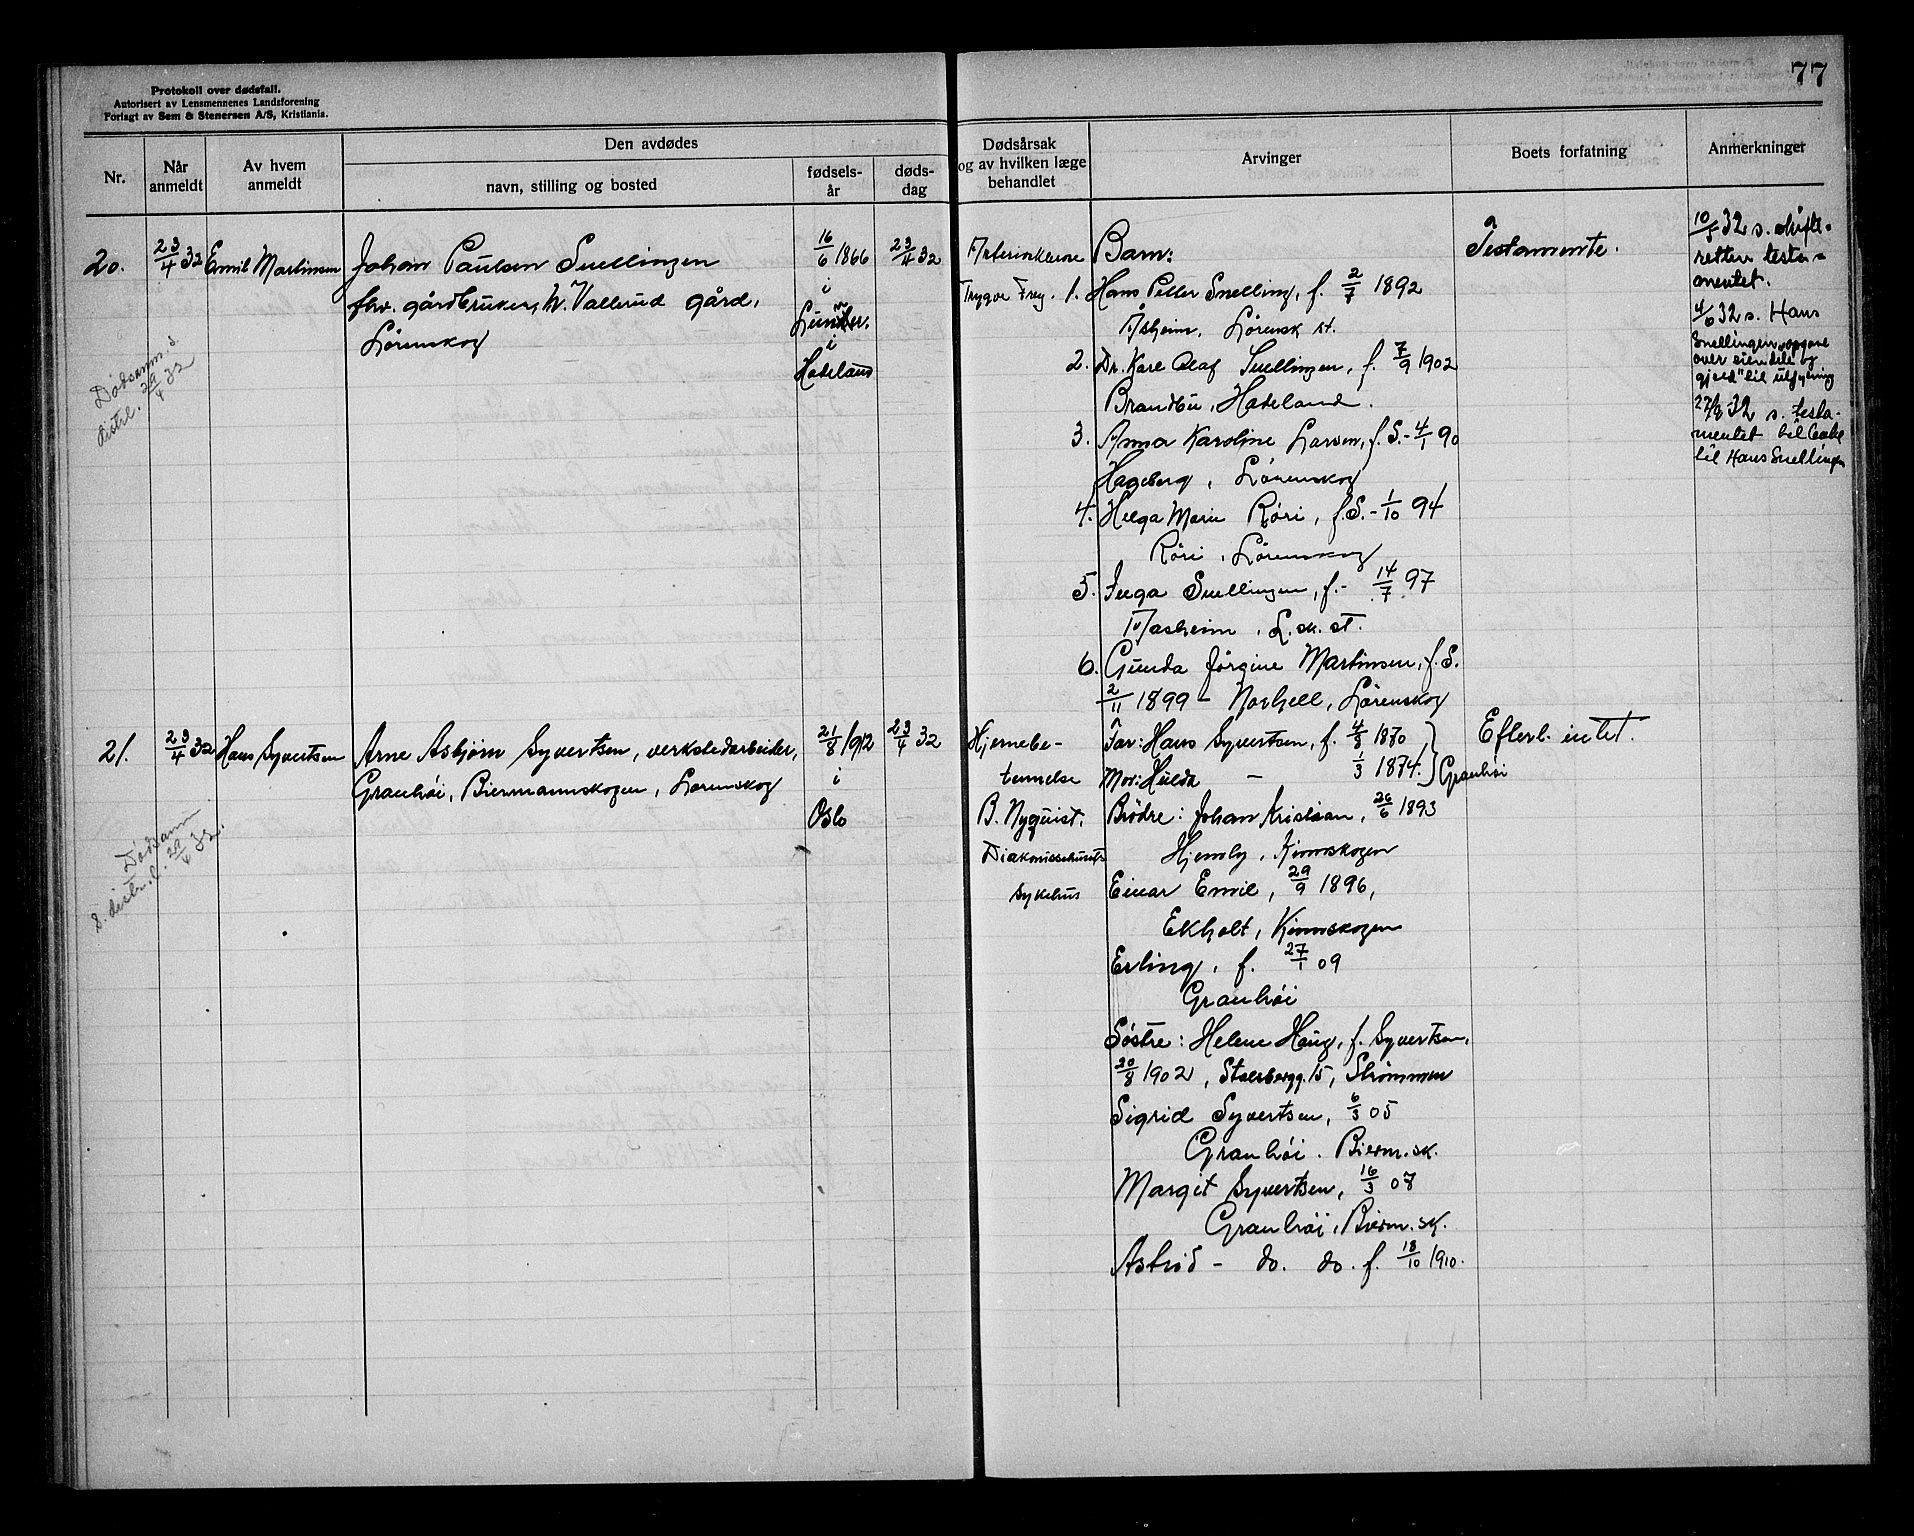 77
Protokoll over dødsfall.
Autorisert av Lensmennenes Landsforening
Forlagt av Sem & Stenersen A/S, Kristiania.
Nr.
Når anmeldt
Av hvem anmeldt
Den avdødes
navn, stilling og bosted
fødsels-år
døds-dag
Dødsårsak og av hvilken læge behandlet
Arvinger
Boets forfatning
Anmerkninger
20.
23/4 32
Emil Martinsen
Johan Paulsen Snellingen
fhv. gårdbruker, N. Vallerud gård,
Lørenskog
16/6 1866
i
Lunner
i
Hadeland
23/4 32
Trygve Frey.
Barn:
1. Hans Petter Snelling, f. 2/7 1892
Åsheim, Lørensk st.
2. Dr. Kare Olaf Snellingen, f. 7/9 1902
Brandbu, Hadeland.
3. Anna Karoline Larsen, f. S. - 4/1 90
Hageberg, Lørenskog
4. Helga Marie Röri, f. S. - 1/10 94
Röri, Lørenskog
5. Inga Snellingen, f. - 14/7 97
Aasheim, L.sk. st.
6. Gunda Jörgine Martinsen, f. S.
2/11 1899 - Norhell, Lørenskog
Testamente.
10/5 32 s. skifte-
retten testa-
mentet.
4/6 32 s. Hans
Snellingen "opgave
over eiendele og
gjæld" til utfylning
27/8 32 s. testa-
mentet tilbake
til Hans Snellingen
Dødsanm. s.
distr. 29/4 32
21.
23/4 32
Hans Syvertsen
Arne Asbjørn Syvertsen, verkstedarbeider,
Granhöi, Biermannskogen, Lørenskog
21/8 1912
i
Oslo
23/4 32
Hjernebe-
tennelse
B. Nyquist,
Diakonissehusets
sykehus
Far: Hans Syvertsen, f. 4/8 1870
Mor: Hulda - 1/3 1874. } Granhöi
Brödre: Johan Kristian, 26/6 1893
Hjemly, Kinnskogen
Einar Emil, 29/9 1896,
Ekholt, Kinnskogen
Erling, f. 27/1 09
Granhöi
Söstre: Helene Haug, f. Syvertsen,
20/8 1902, Stalsbergg. 15, Strømmen
Sigrid Syvertsen, 6/3 05
Granhöi. Bierm.sk.
Margit Syvertsen, 16/3 07
Granhöi, Bierm.sk.
Astrid - do. do. f. 18/10 1910.
Efterl. intet.
Dødsanm
s. distr. l. 29/4 32.